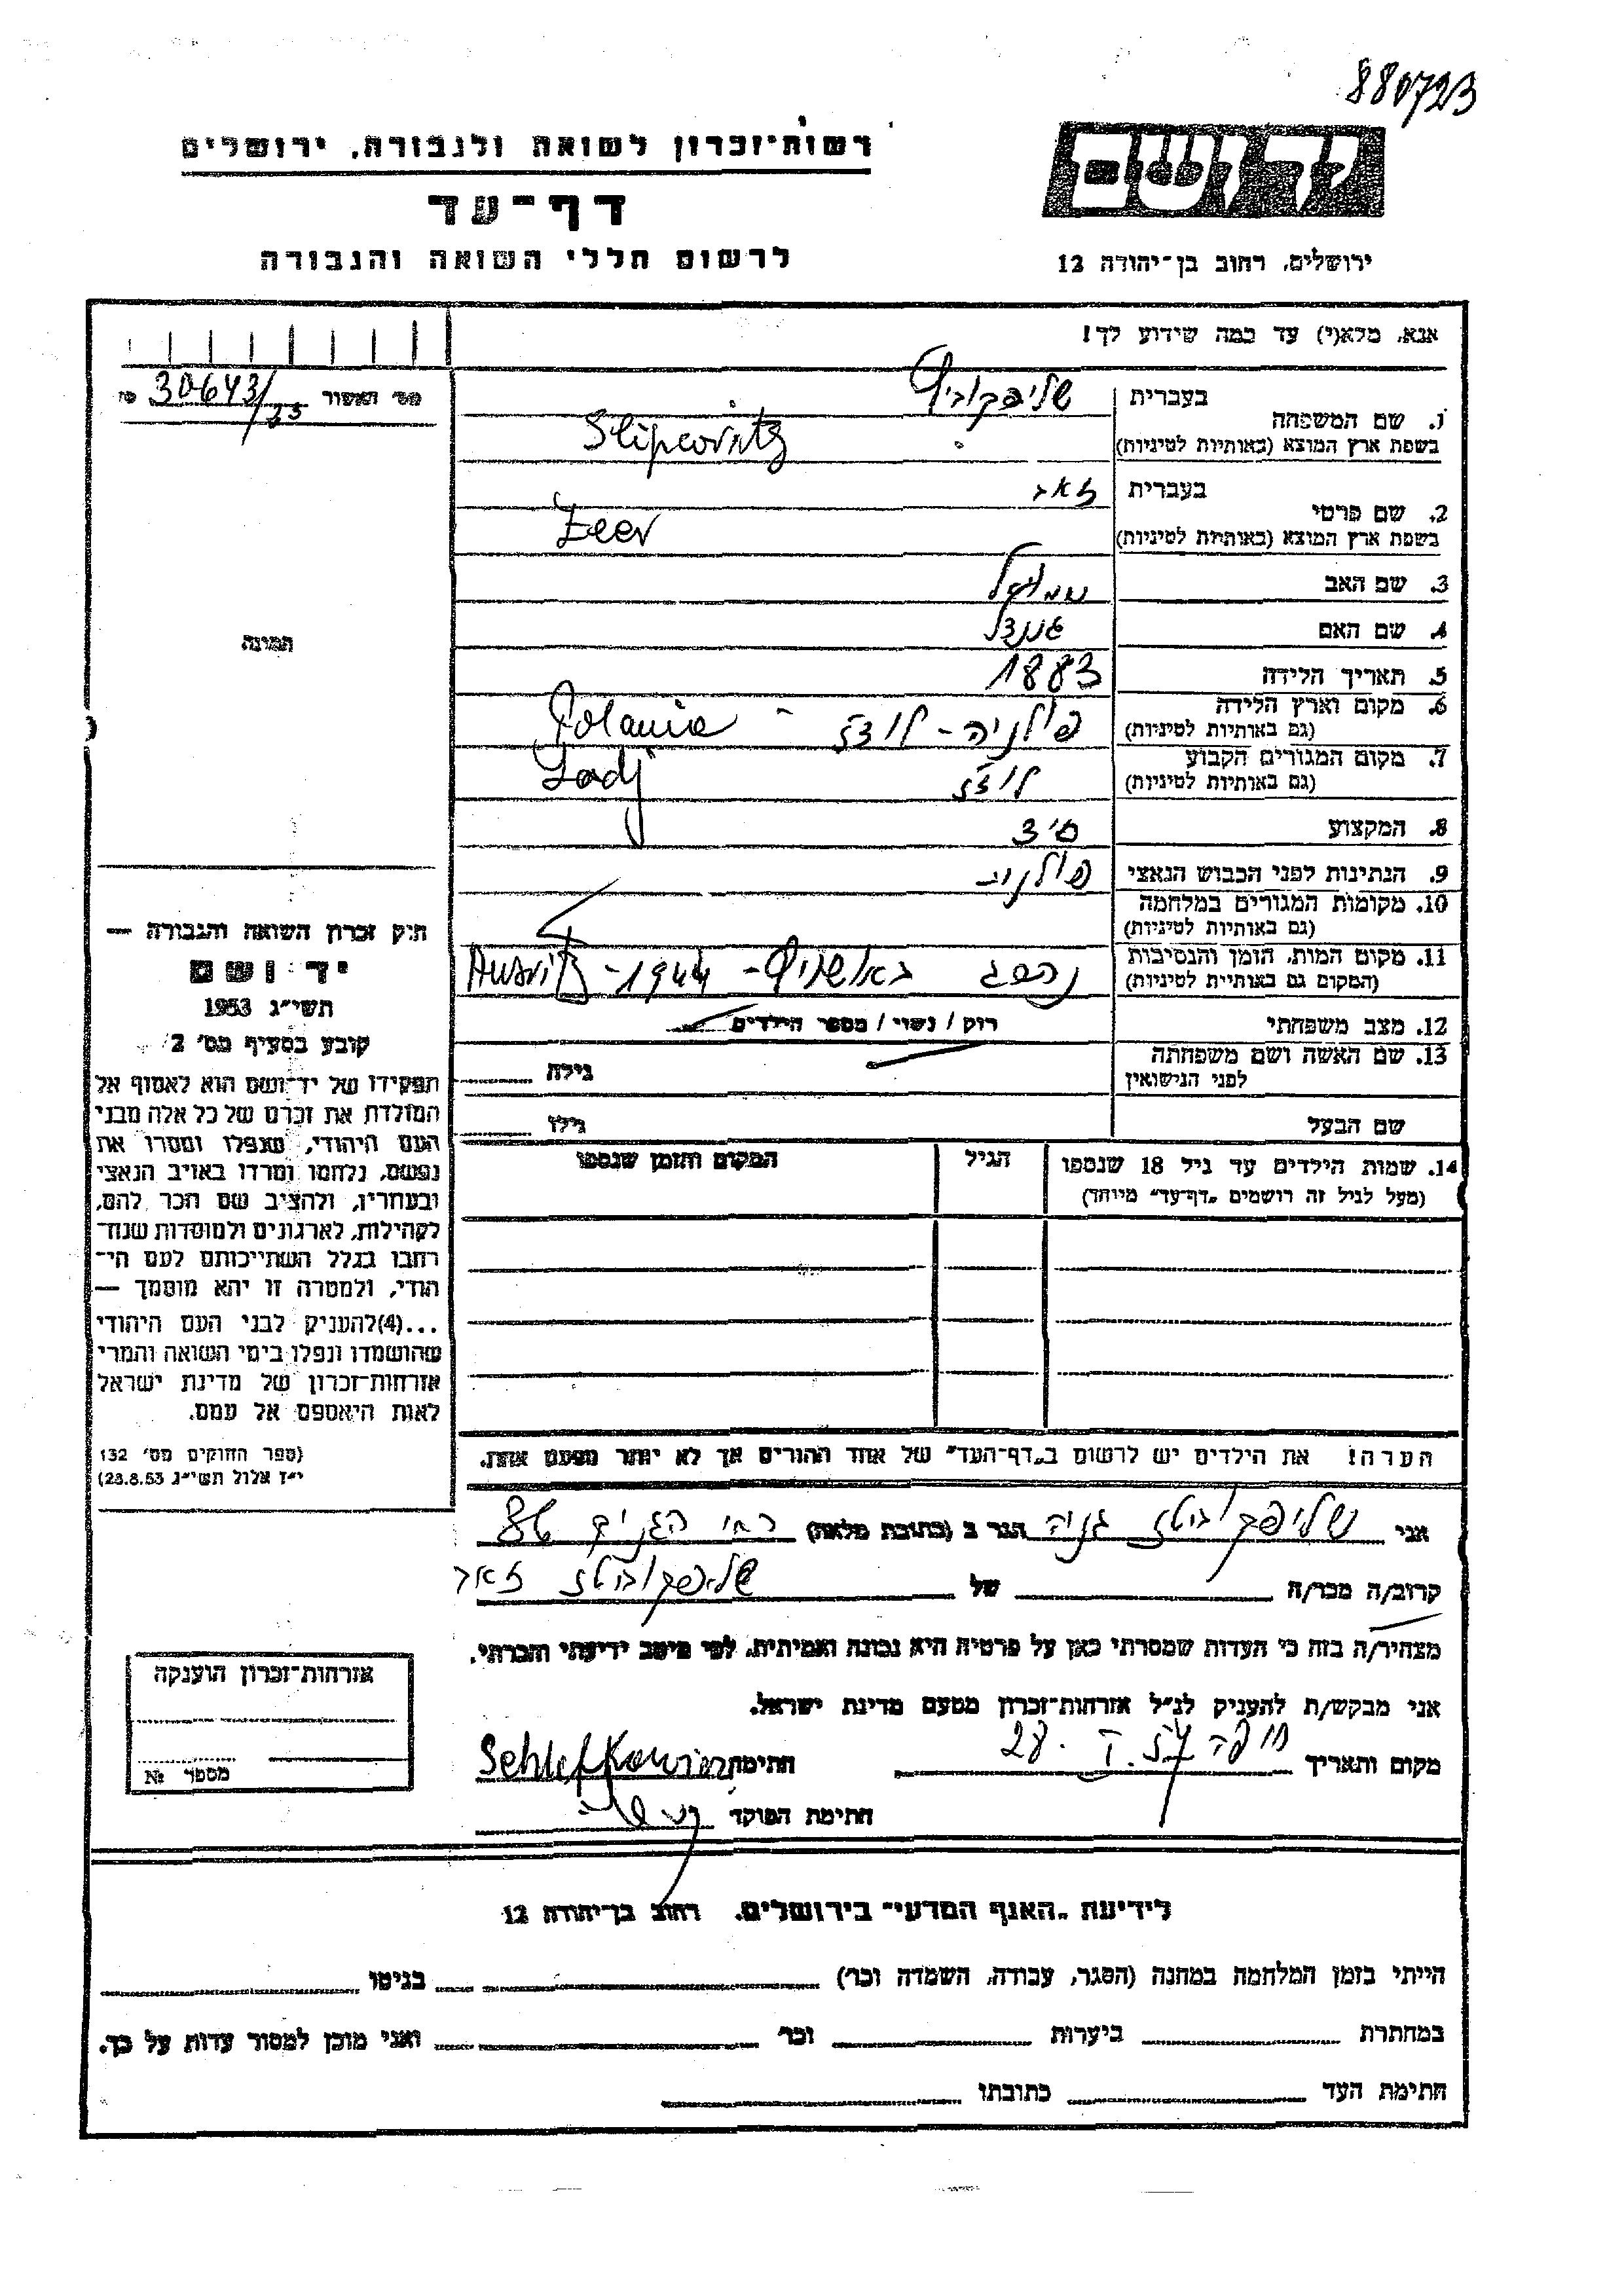 880723
יד ושם
רשות־זכרון לשואה ולגבורה, ירושלים
דף־עד
לרשום חללי השואה והגבורה
ירושלים, רחוב בן־יהודה 12
אנא, מלא(י) עד כמה שידוע לך!
מס׳ האשור 30643/25
1. שם המשפחה בעברית שליפקוביץ
בשפת ארץ המוצא (באותיות לטיניות) Slipcovitz
2. שם פרטי בעברית זאב
בשפת ארץ המוצא (באותיות לטיניות) Zeev
3. שם האב שמואל
4. שם האם
5. תאריך הלידה 1883
6. מקום וארץ הלידה (גם באותיות לטיניות) פולניה - לודז - Polania
7. מקום המגורים הקבוע (גם באותיות לטיניות) לודז Lodj
8. המקצוע
9. הנתינות לפני הכבוש הנאצי פולנית
10. מקומות המגורים במלחמה (גם באותיות לטיניות)
11. מקום המות, הזמן והנסיבות (המקום גם באותיות לטיניות) נהרג באושויץ - 1944 - Ausvitz
12. מצב משפחתי רוק / נשוי / מספר הילדים
13. שם האשה ושם משפחתה לפני הנישואין גילה
שם הבעל גילו
14. שמות הילדים עד גיל 18 שנספו הגיל המקום והזמן שנספו
(מעל לגיל זה רושמים „דף־עד״ מיוחד)
הערה! את הילדים יש לרשום ב„דף־העד״ של אחד ההורים אך לא יותר מפעם אחת.
תמונה
חוק זכרון השואה והגבורה —
יד ושם
תשי״ג 1953
קובע בסעיף מס׳ 2
תפקידו של יד־ושם הוא לאסוף אל
המולדת את זכרם של כל אלה מבני
העם היהודי, שנפלו ומסרו את
נפשם, נלחמו ומרדו באויב הנאצי
ובעוזריו, ולהציב שם וזכר להם,
לקהילות, לארגונים ולמוסדות שנח־
רבו בגלל השתייכותם לעם הי־
הודי, ולמטרה זו יהא מוסמך —
...(4)להעניק לבני העם היהודי
שהושמדו ונפלו בימי השואה והמרי
אזרחות־זכרון של מדינת ישראל
לאות היאספם אל עמם.
(ספר החוקים מס׳ 132
י״ז אלול תשי״ג 23.8.53)
אני שליפקוביטז גניה הגר ב (כתובת מלאה) 86
קרוב/ה מכר/ה של שליפקוביטז זאב
מצהיר/ה בזה כי העדות שמסרתי כאן על פרטיה היא נכונה ואמיתית, לפי מיטב ידיעתי והכרתי.
אני מבקש/ת להעניק לנ״ל אזרחות־זכרון מטעם מדינת ישראל.
מקום ותאריך חיפה 28. חתימה
חתימת הפוקד
אזרחות־זכרון הוענקה
מספר №
לידיעת „האגף המדעי״ בירושלים, רחוב בן־יהודה 12
הייתי בזמן המלחמה במחנה (הסגר, עבודה, השמדה וכו׳) בגיטו
במחתרת ביערות וכו׳ ואני מוכן למסור עדות על כך.
חתימת העד כתובתו